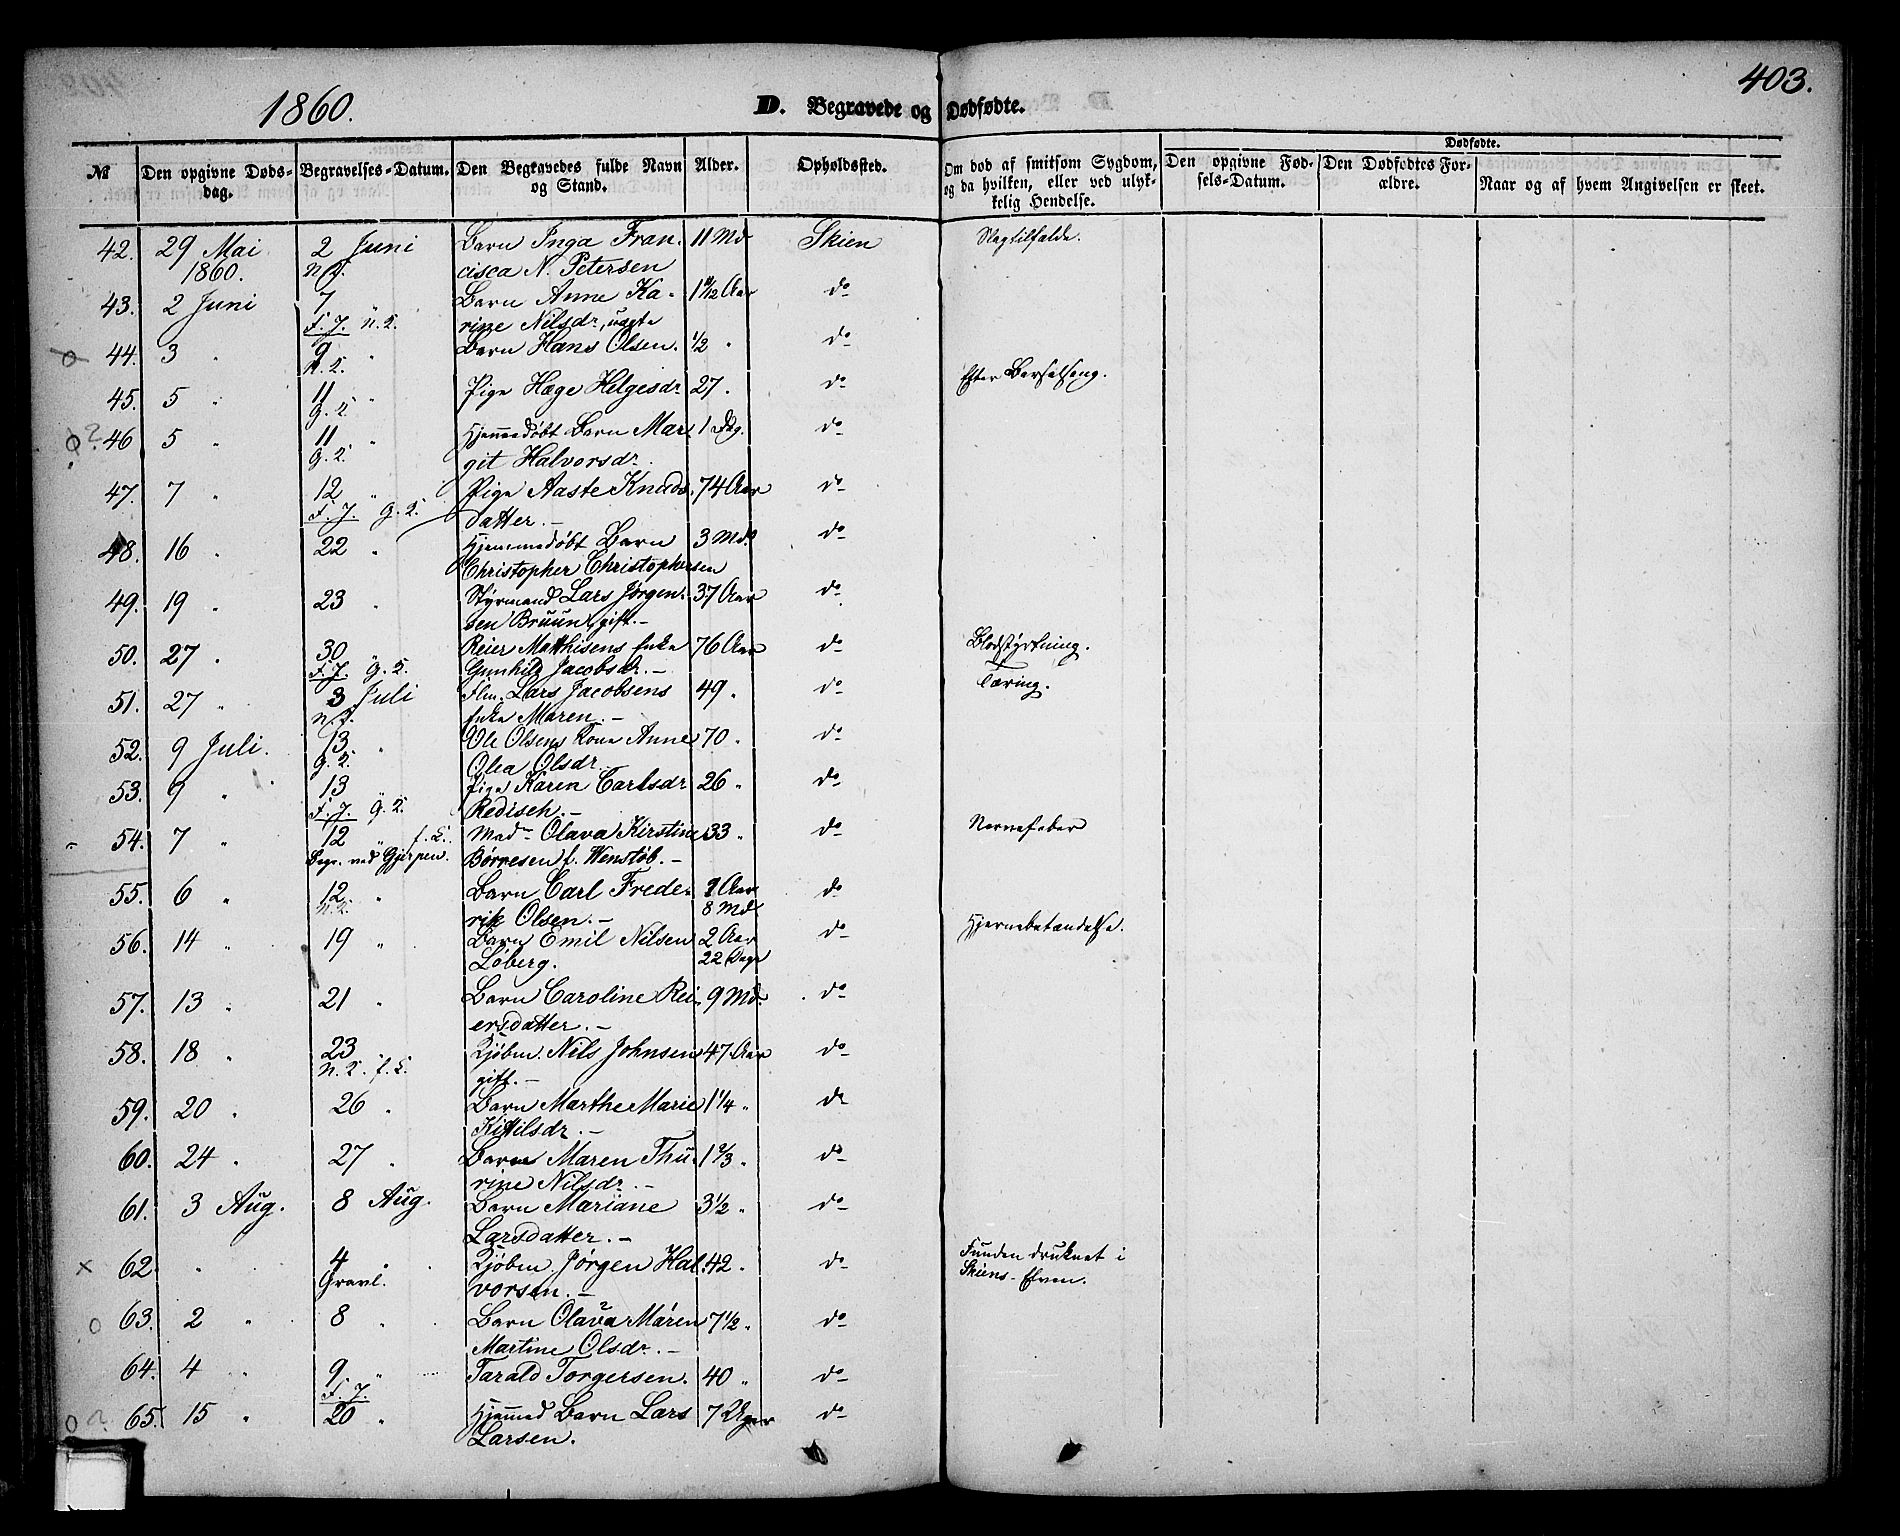 403.
1860.
D. Begravede og Dødfødte.
Dødfødte.
№ Den opgivne Døds- Begravelses-Datum. Den Begravedes fulde Navn Alder. Opholdssted. Om død af smitsom Sygdom, Den opgivne Fød- Den Dødfødtes For- Naar og af hvem Angivelsen er skeet.
dag. og Stand. og da hvilken, eller ved ulyk- sels-Datum. ældre.
kelig Hendelse.
42. 29 Mai 2 Juni Barn Inga Fran- 11 Md Skien Slagtilfælde.
1860. cisca N. Petersen
43. 2 Juni 7 " Barn Anne Ka- Aar do
F. J. rine Nilsdr, uægte
44. 3 " 9 " Barn Hans Olsen. 1/2 " do
45. 5 " 11 " Pige Hæge Helgesdr 27. do Efter Barselseng.
46 5 " 11 " Hjemmedøbt Barn Mar- 1 Dag. do
git Halvorsdr.
47. 7 " 12 " Pige Aaste Knuds- 74 Aar do
F. J. datter. –
48. 16 " 22 " Hjemmedøbt Barn 3 Md. do
Christopher Christophersen
49. 19 " 23 " Styrmand Lars Jørgen- 37 Aar do
sen Bruun, gift. –
50. 27 " 30 " Reier Mathisens Enke 76 Aar do Blodstyrtning.
F. J. Gunhild Jacobsdr. –
51. 27 " 3 Juli Lars Jacobsens 49 " do Tæring.
Enke Maren. –
52. 9 Juli. 13. " Ole Olsens Kone Anne 70 " do
Olea Olsdr.
53. 9 " 13 " Pige Karen Carlsdr 26 " do
F. J. Redisch. –
54. 7 " 12 " Mad. Olava Kirstine 33 " do Nervefeber
Begr. ved Gjerpen. Børresen f. Wenstøb. –
55. 6 " 12 " Barn Carl Frede- Aar do
rik Olsen. – 8 Md
56. 14 " 19 " Barn Emil Nilsen 2 Aar do Hjernebetændelse.
Løberg. 22 Dage
57. 13 " 21 " Barn Caroline Rei- 9 Md. do
ersdatter. –
58. 18 " 23 Kjøbm. Nils Johnsen 47 Aar do
gift. –
59. 20 " 26 " Barn Marthe Marie 1 1/4 " do
Kittilsdr. –
60. 24 " 27 " Barn Maren Thu- 1 2/3 " do
rine Nilsdr. –
61. 3 Aug. 8 Aug. Barn Mariane 3 1/2 " do
Larsdatter. –
x 62 " 4 " Kjøbm. Jørgen Hal- 42 " do Funden druknet i
Gravl. vorsen. – Skiens-Elven.
o 63. 2 " 8 " Barn Olava Maren 7 1/2 " do
Martine Olsdr. –
64. 4 " 9 " Tarald Torgersen. 40 " do
F. J.
o? 65. 15 " 20 " Hjemmed Barn Lars 7 Uger do
Larsen.